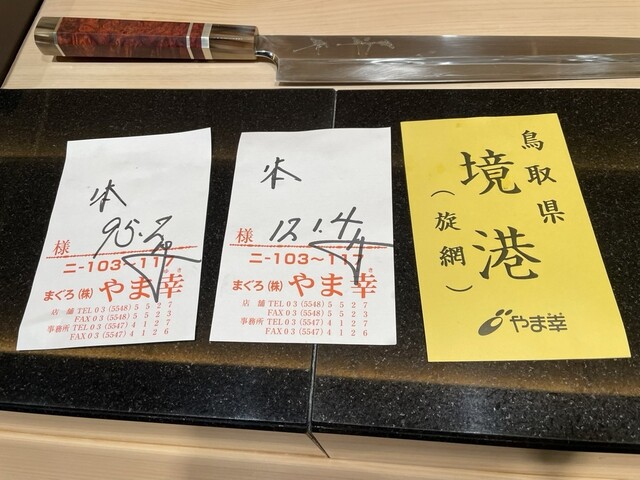 本
95.2
様
ニ-103〜117
まぐろ(株)やま幸
店舗 TEL 03 (5548) 5527
FAX 03 (5548) 5523
事務所 TEL 03 (5547) 4127
FAX 03 (5547) 4126
本
121.4
様
ニ-103〜117
まぐろ(株)やま幸
店舗 TEL 03 (5548) 5527
FAX 03 (5548) 5523
事務所 TEL 03 (5547) 4127
FAX 03 (5547) 4126
鳥取県
境港
(旋網)
やま幸